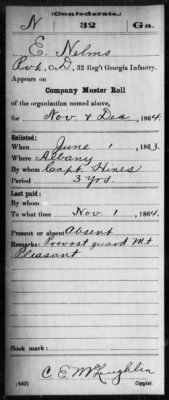 (Confederate.)
N 32 Ga.
E. Nelms
Pvt., Co. D, 32 Reg't Georgia Infantry.
Appears on
Company Muster Roll
of the organization named above,
for Nov & Dec, 1864.
Enlisted:
When June 1, 1863.
Where Albany
By whom Capt. Hines
Period 3 yrs.
Last paid:
By whom
To what time Nov 1, 1864.
Present or absent Absent
Remarks: Provost guard Mt
Pleasant
Book mark:
C. E. McLaughlin
(642) Copyist.